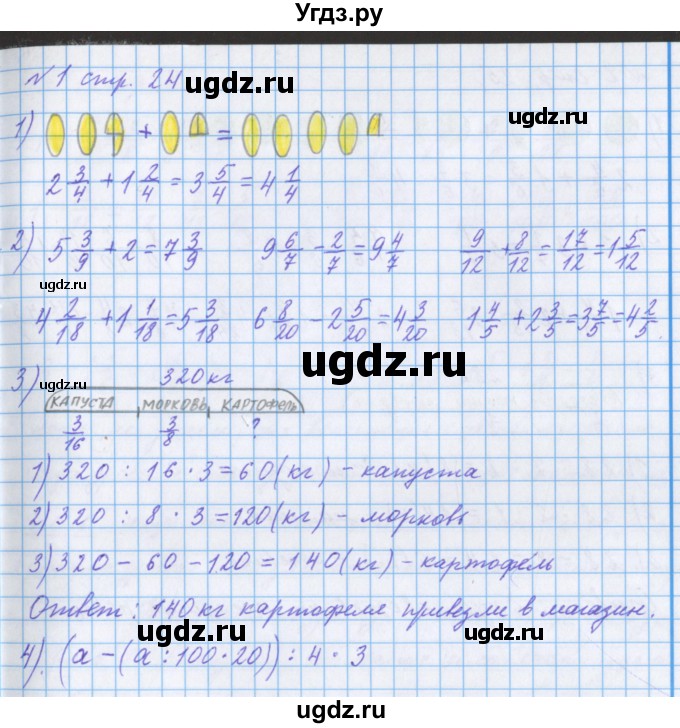 Угдз.ру
№ 1 стр. 24
ugdz.ru
1) + =
ugdz.ru
2 3/4 + 1 2/4 = 3 5/4 = 4 1/4
ugdz.ru
2) 5 3/9 + 2 = 7 3/9 9 6/7 - 2/7 = 9 4/7 9/12 + 8/12 = 17/12 = 1 5/12
ugdz.ru
4 2/18 + 1 1/18 = 5 3/18 6 8/20 - 2 5/20 = 4 3/20 1 4/5 + 2 3/5 = 3 7/5 = 4 2/5.
ugdz.ru
3) 320 кг
ugdz.ru
КАПУСТА МОРКОВЬ КАРТОФЕЛЬ
3/16 3/8 ?
ugdz.ru
1) 320 : 16 · 3 = 60 (кг) - капуста
2) 320 : 8 · 3 = 120 (кг) - морковь
ugdz.ru
3) 320 - 60 - 120 = 140 (кг) - картофель
ugdz.ru
Ответ: 140 кг картофеля привезли в магазин.
ugdz.ru
4). (а - (а : 100 · 20)) : 4 · 3
ugdz.ru